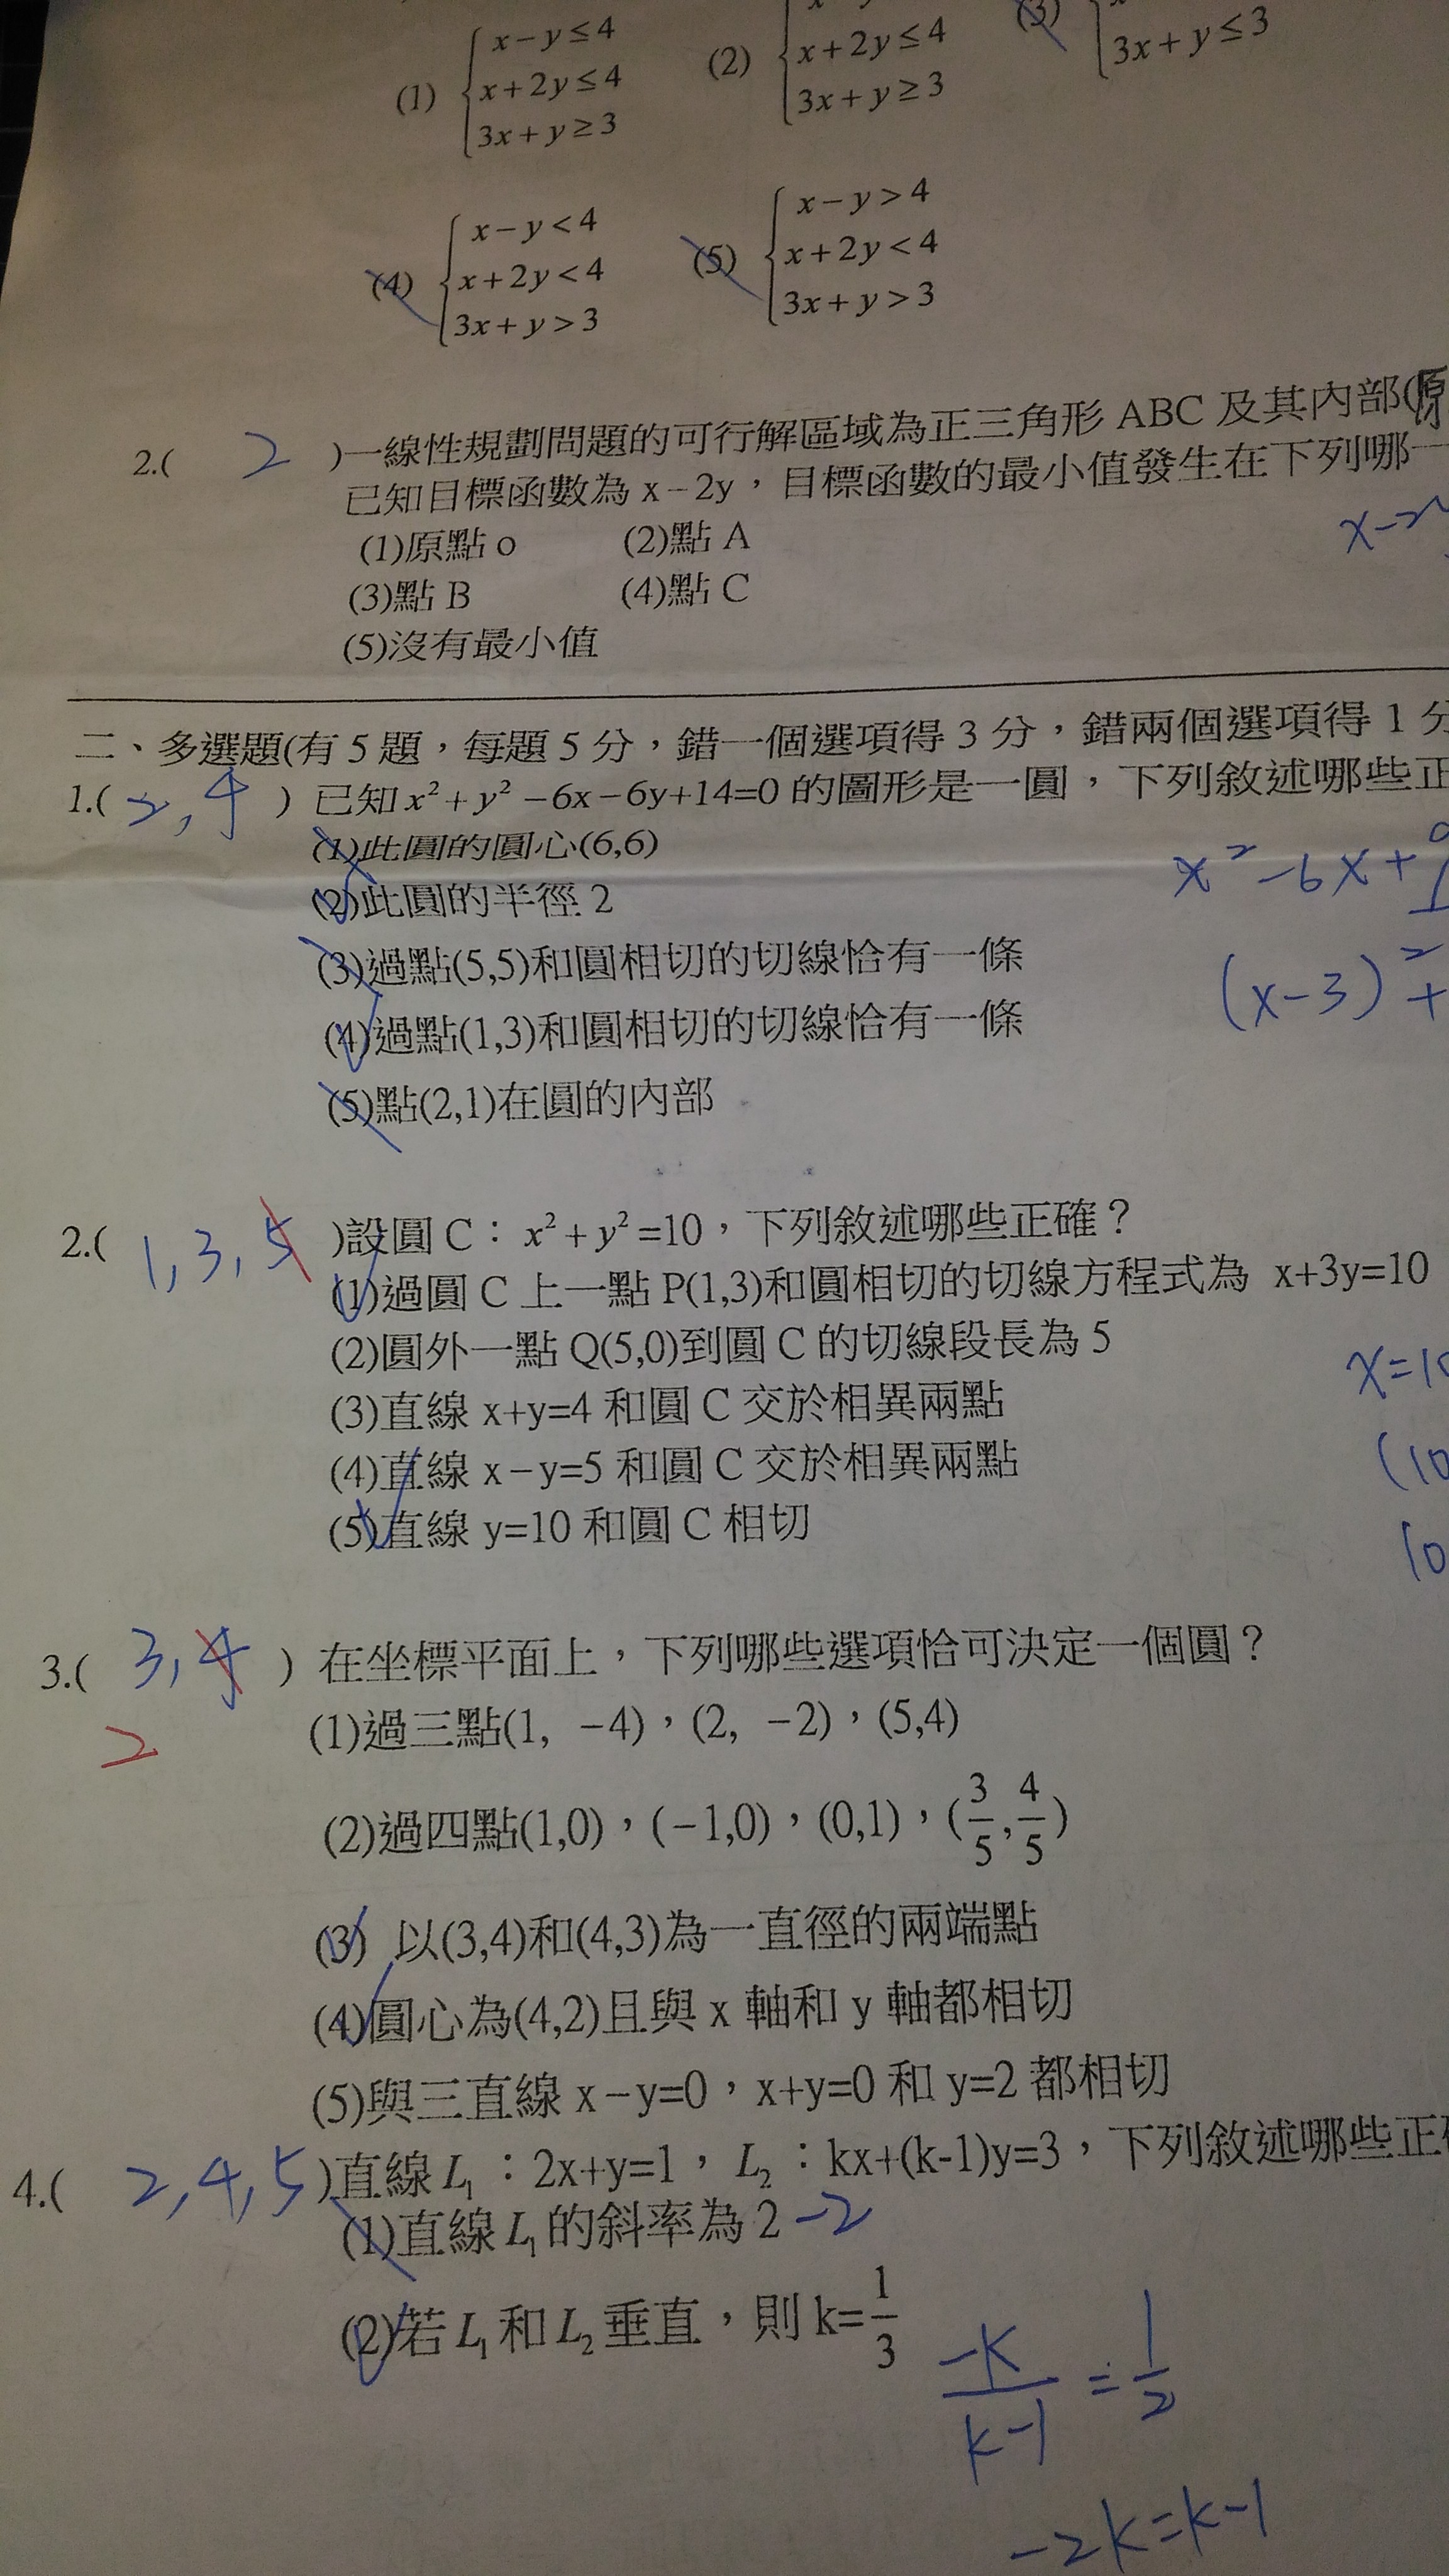 (1) { x－y≤4
x+2y≤4
3x+y≥3
(2) {
x+2y≤4
3x+y≥3
(3) {
3x+y≤3
(4) { x－y<4
x+2y<4
3x+y>3
(5) { x－y>4
x+2y<4
3x+y>3
2.( 2 )一線性規劃問題的可行解區域為正三角形 ABC 及其內部(原
已知目標函數為 x－2y，目標函數的最小值發生在下列哪一
x－2
(1)原點 o (2)點 A
(3)點 B (4)點 C
(5)沒有最小值
二、多選題(有 5 題，每題 5 分，錯一個選項得 3 分，錯兩個選項得 1 分
1.( 2,4 ) 已知 x²+y²－6x－6y+14=0 的圖形是一圓，下列敘述哪些正
(1)此圓的圓心(6,6)
x²－6x+9
(2)此圓的半徑 2
(3)過點(5,5)和圓相切的切線恰有一條
(x－3)²+
(4)過點(1,3)和圓相切的切線恰有一條
(5)點(2,1)在圓的內部
2.( 1,3,5 )設圓 C：x²+y²=10，下列敘述哪些正確？
(1)過圓 C 上一點 P(1,3)和圓相切的切線方程式為 x+3y=10
(2)圓外一點 Q(5,0)到圓 C 的切線段長為 5
x=10
(3)直線 x+y=4 和圓 C 交於相異兩點
(4)直線 x－y=5 和圓 C 交於相異兩點
(10
(5)直線 y=10 和圓 C 相切
10
3.( 3,4 ) 在坐標平面上，下列哪些選項恰可決定一個圓？
2
(1)過三點(1, －4)，(2, －2)，(5,4)
(2)過四點(1,0)，(－1,0)，(0,1)，(3/5,4/5)
(3) 以(3,4)和(4,3)為一直徑的兩端點
(4)圓心為(4,2)且與 x 軸和 y 軸都相切
(5)與三直線 x－y=0，x+y=0 和 y=2 都相切
4.( 2,4,5 )直線 L₁：2x+y=1，L₂：kx+(k-1)y=3，下列敘述哪些正確
(1)直線 L₁ 的斜率為 2 －2
(2)若 L₁ 和 L₂ 垂直，則 k=1/3
－k/k－1 = 1/2
－2k=k－1